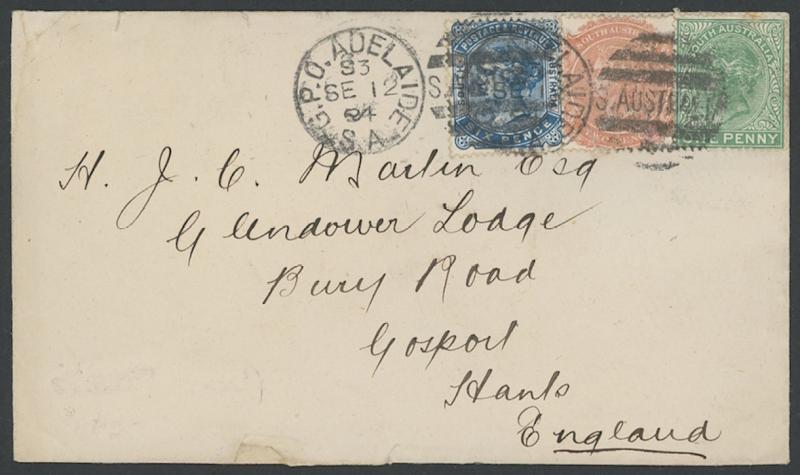 G.P.O. ADELAIDE
S3
SE 12
84
S.A
POSTAGE & REVENUE
S. AUSTRALIA
SIX PENCE
SOUTH AUSTRALIA
S. AUSTRALIA
SOUTH AUSTRALIA
ONE PENNY
H. J. C. Martin Esq
Glendower Lodge
Bury Road
Gosport
Hants
England